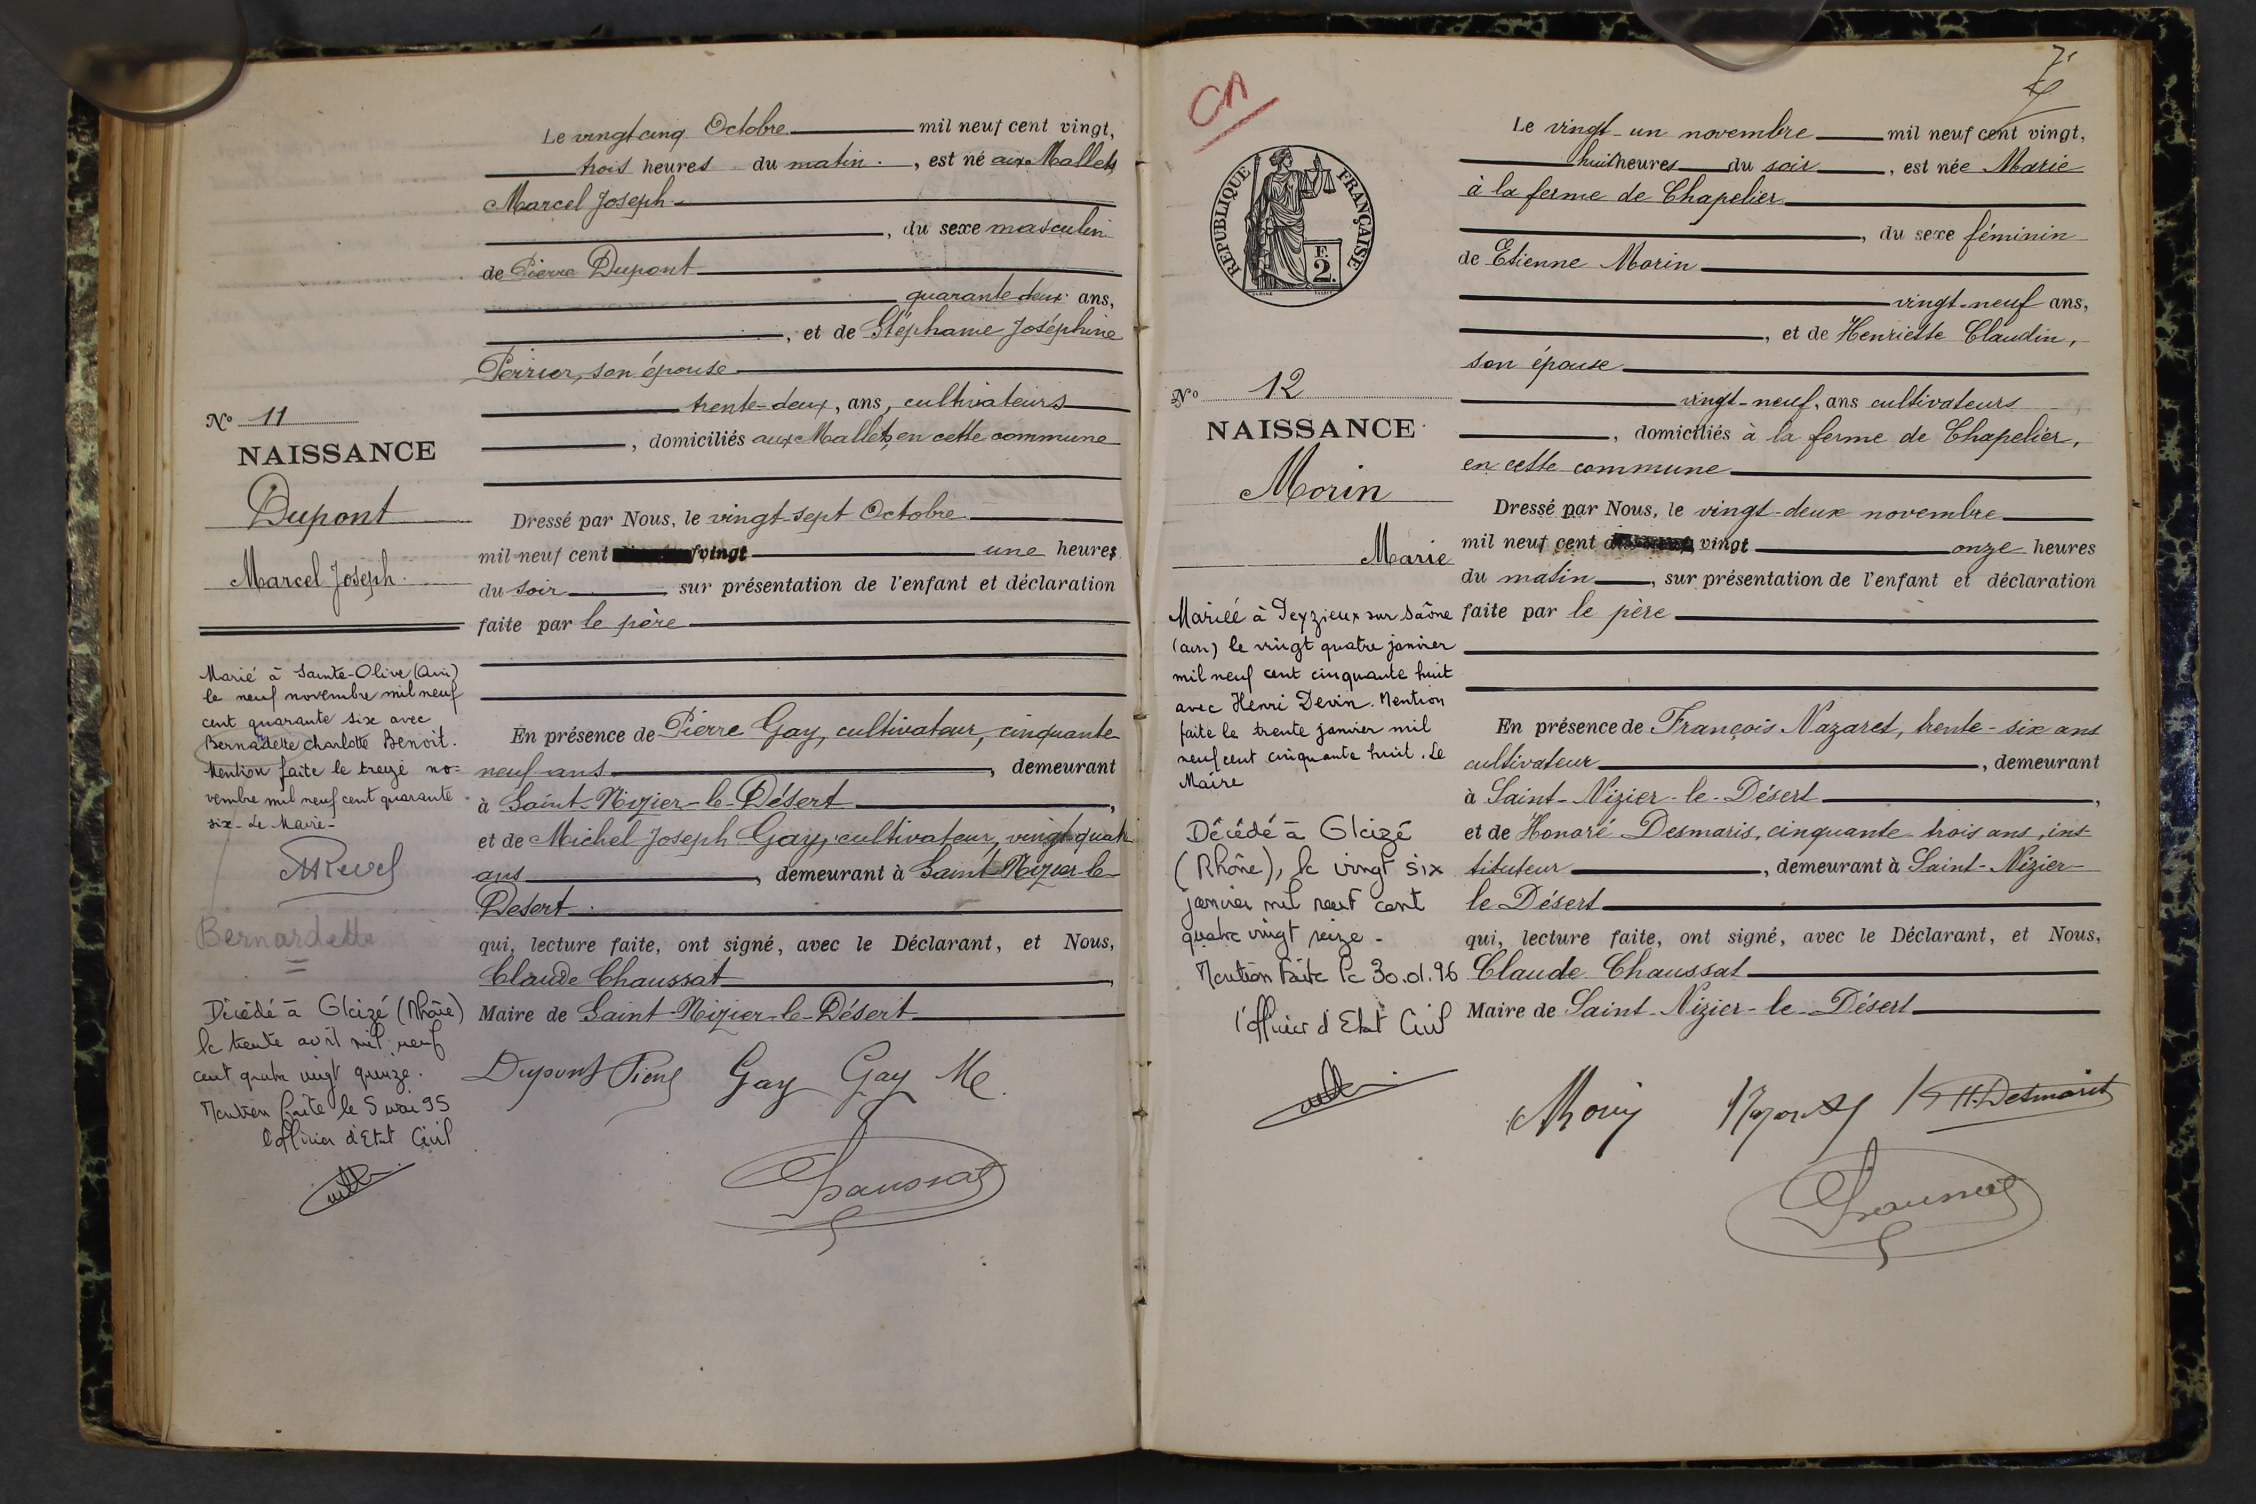 Le vingt cinq Octobre mil neuf cent vingt,
trois heures du matin. , est né aux Mallets
Marcel Joseph
, du sexe masculin
de Pierre Dupont
quarante-deux ans,
, et de Stéphanie Joséphine
Perrier, son épouse
trente-deux, ans, cultivateurs
, domiciliés aux Mallets, en cette commune
Dressé par Nous, le vingt-sept Octobre
mil neuf cent vingt une heures
du soir sur présentation de l'enfant et déclaration
faite par le père
En présence de Pierre Gay, cultivateur, cinquante
neuf ans , demeurant
à Saint-Nizier-le-Désert ,
et de Michel Joseph Gay, cultivateur, vingt-quatre
ans , demeurant à Saint-Nizier-le
Désert
qui, lecture faite, ont signé, avec le Déclarant, et Nous,
Claude Chaussat ,
Maire de Saint-Nizier-le-Désert
Dupont Pierre Gay Gay M
Chaussat
No 11
NAISSANCE
Dupont
Marcel Joseph.
Marié à Sainte-Olive (Ain)
le neuf novembre mil neuf
cent quarante six avec
Bernadette Charlotte Benoit.
Mention faite le treize no=
vembre mil neuf cent quarante
six - Le Maire -
Bernardette
Décédé à Gleizé (Rhône)
le trente avril mil neuf
cent quatre vingt quinze.
Mention faite le 5 mai 95
l'officier d'Etat Civil
CA
RÉPUBLIQUE FRANÇAISE
F.
2.
No 12
NAISSANCE
Morin
Marie
Mariée à Peyzieux sur Saône
(ain) le vingt quatre janvier
mil neuf cent cinquante huit
avec Henri Devin. Mention
faite le trente janvier mil
neuf cent cinquante huit. Le
Maire
Décédé à Gleizé
(Rhône), le vingt six
janvier mil neuf cent
quatre vingt seize -
Mention faite le 30.01.96
l'officier d'Etat Civil
Le vingt-un novembre mil neuf cent vingt,
huit heures du soir , est née Marie
à la ferme de Chapelier
, du sexe féminin
de Etienne Morin
vingt-neuf ans,
, et de Henriette Claudin,
son épouse
vingt-neuf, ans cultivateurs
, domiciliés à la ferme de Chapelier,
en cette commune
Dressé par Nous, le vingt-deux novembre
mil neuf cent vingt onze heures
du matin , sur présentation de l'enfant et déclaration
faite par le père
En présence de François Nazaret, trente-six ans
cultivateur , demeurant
à Saint-Nizier-le-Désert ,
et de Honoré Desmaris, cinquante trois ans, ins
tituteur , demeurant à Saint-Nizier-
le Désert
qui, lecture faite, ont signé, avec le Déclarant, et Nous,
Claude Chaussat
Maire de Saint-Nizier-le-Désert
Morin H. Desmaris
Chaussat